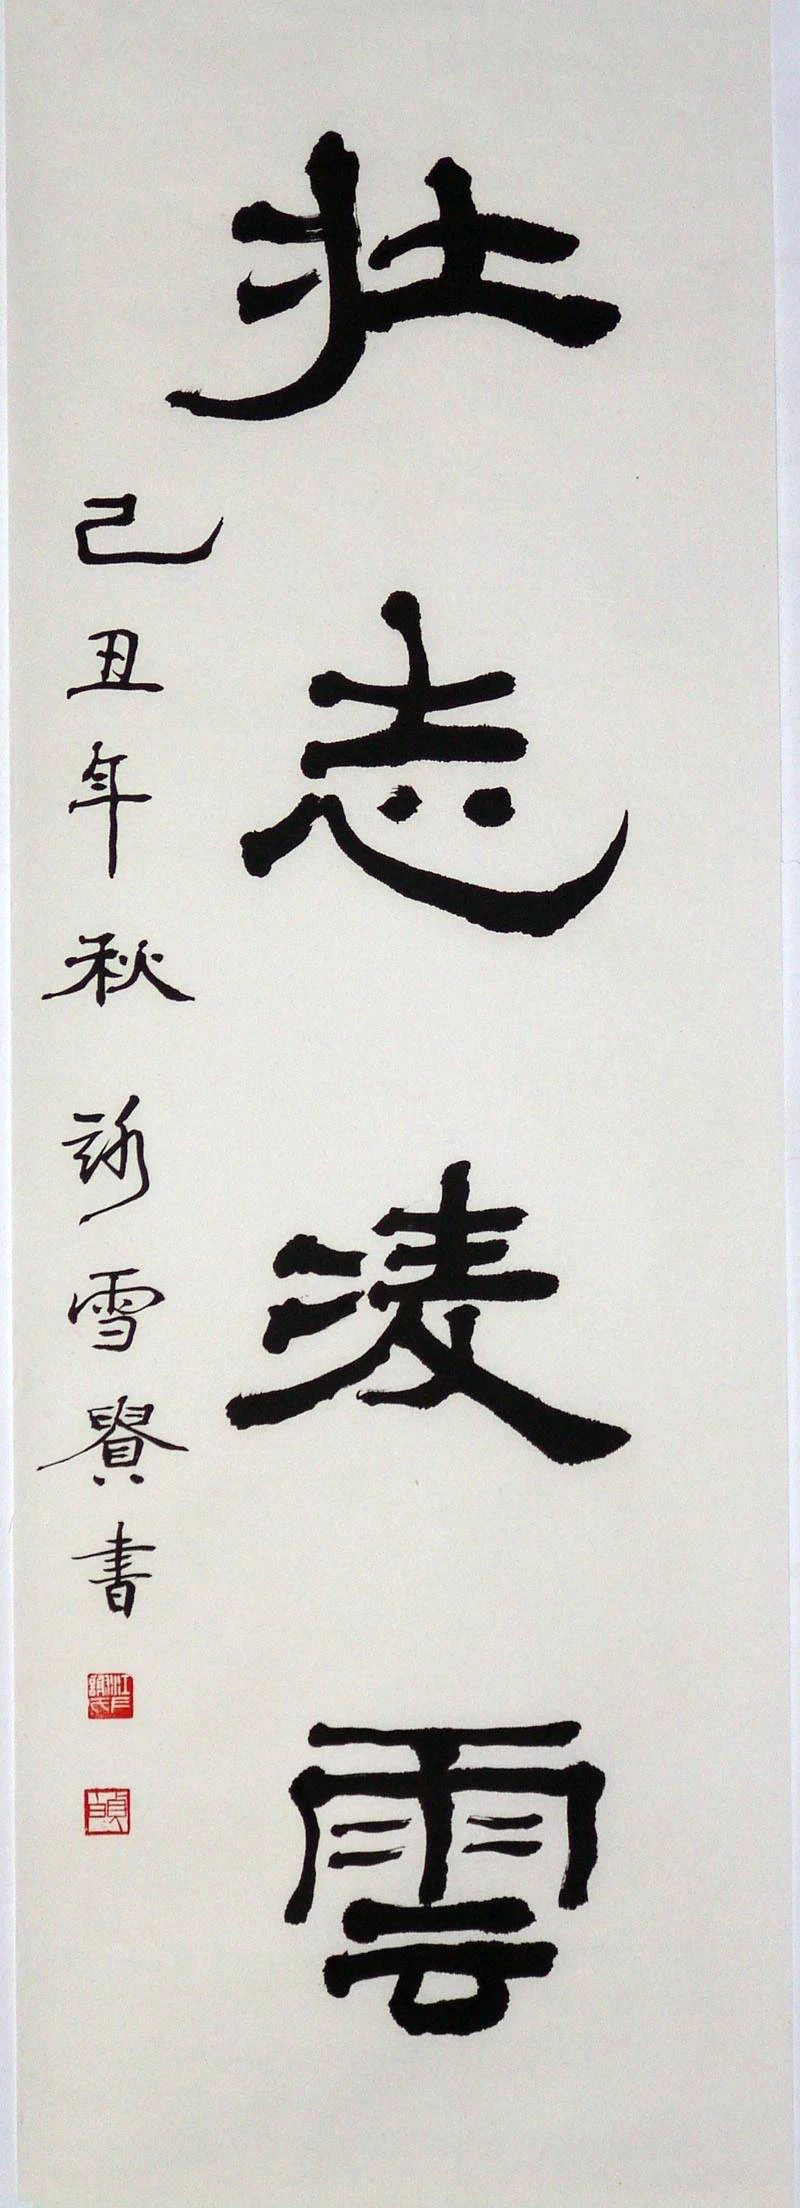 壮志淩雲
己丑年秋 詠雪書